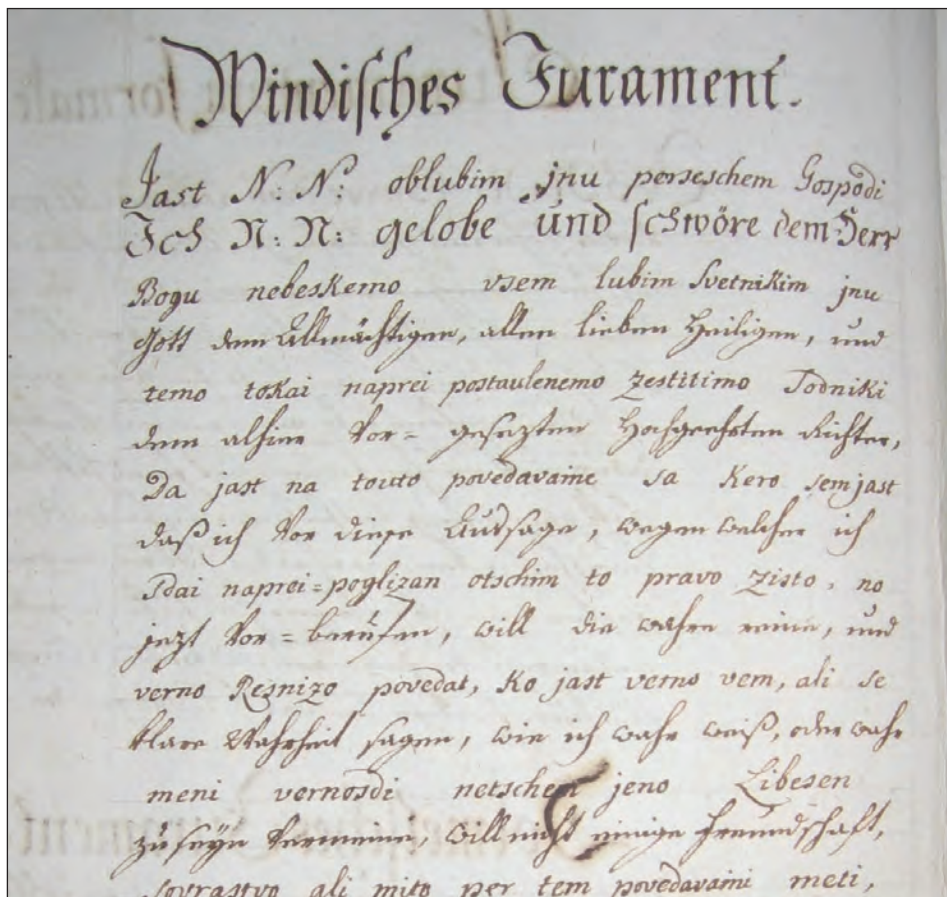 Windisches Jurament.
Jast N: N: oblubim jnu perseschem Gospodi
Ich N: N: gelobe und schwöre dem Herr
Bogu nebeskemo vsem lubim Svetnikim jnu
Gott dem Allmächtigen, allen lieben Heiligen, und
temo tokai naprei postaulenemo zestitimo Sodniki
dem alhier Vor= gesezten Hochgeehrten Richter,
Da jast na touto povedavaine sa kero sem jast
daß ich Vor diese Aussage, wegen welcher ich
sdai naprei=poglizan otschim to pravo zisto, no
jezt Vor=beruffen, will die wahre reine, und
verno Resnizo povedat, ko jast verno vem, ali se
klare Wahrheit sagen, wie ich wahr weiß, oder wahr
meni vernosdi netschem jeno Libesen
zu seyn Vermeine, will nicht einige Freundschaft,
sovrastvo ali mito per tem povedavaini meti,